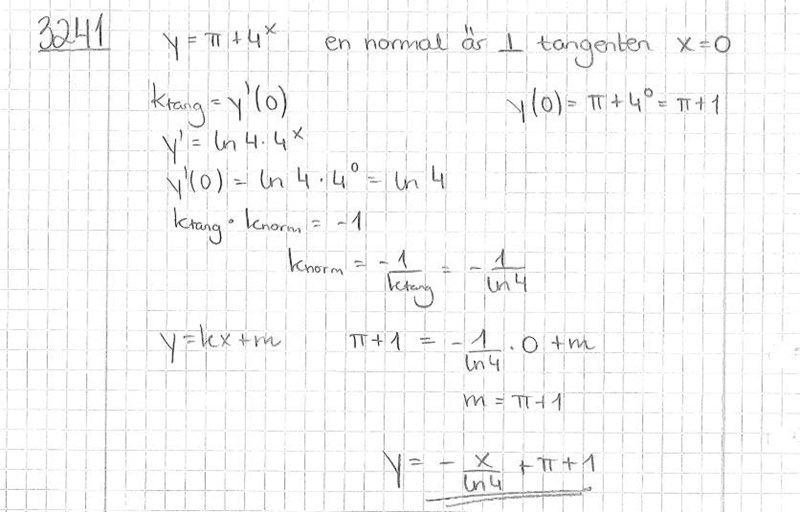 3241 y = π + 4ˣ en normal är ⊥ tangenten x = 0
k_tang = y'(0) y(0) = π + 4⁰ = π + 1
y' = ln 4 · 4ˣ
y'(0) = ln 4 · 4⁰ = ln 4
k_tang · k_norm = -1
k_norm = -1/k_tang = - 1/ln 4
y = kx + m π + 1 = - 1/ln 4 · 0 + m
m = π + 1
y = - x/ln 4 + π + 1